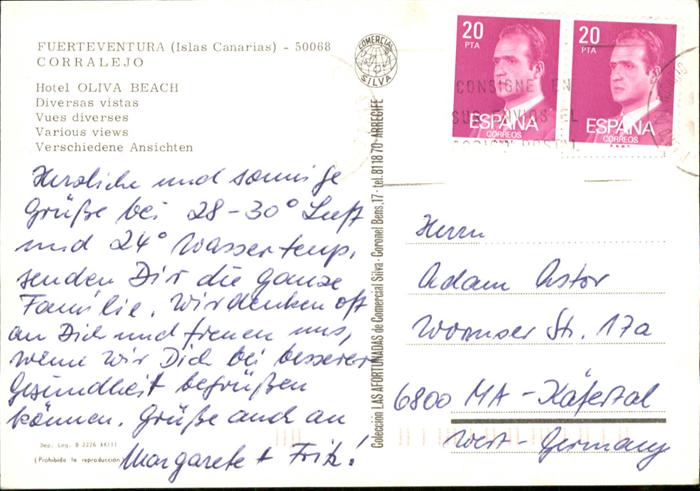 FUERTEVENTURA (Islas Canarias) - 50068
CORRALEJO
Hotel OLIVA BEACH
Diversas vistas
Vues diverses
Various views
Verschiedene Ansichten
Herzliche und sonnige
Grüße bei 28-30° Luft
und 24° Wassertemp.
senden Dir die ganze
Familie. Wir denken oft
an Dich und freuen uns,
wenn wir Dich bei besserer
Gesundheit begrüßen
können. Grüße auch an
Margarete + Fritz!
Dep. Leg. B 2226
(Prohibida la reproducción)
COMERCIAL
SILVA
Colección LAS AFORTUNADAS de Comercial Silva - Coronel Bens, 17 - tel. 81 18 70 - ARRECIFE
20
PTA
ESPAÑA
CORREOS
20
PTA
ESPAÑA
CORREOS
CONSIGNE EN
SUS ENVIOS EL
Herrn
Adam Astor
Wormser Str. 17a
6800 MA-Käfertal
West-Germany